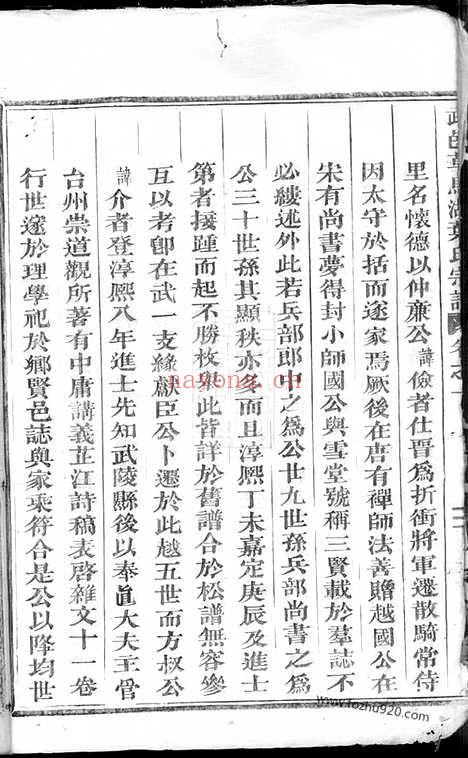 里名懷德以仲蔗公諱儉者仕晋爲折衝將軍遷散騎常侍
因太守於括而遂家焉厥後在唐有禪師法善贈越國公在
宋有尚書夢得封小師國公與雪堂號稱三賢載於羣誌不
必縷述外此若兵部郎中之爲公廿九世孫兵部尚書之爲
公三十世孫其顯秩亦多而且淳熙丁未嘉定庚辰及進士
第者接踵而起不勝枚與此皆詳於舊譜合於松譜無容參
互以考卽在武一支緣獻臣公卜遷於此越五世而方叔公
諱介者登淳熙八年進士先知武陵縣後以奉眞大夫主管
台州崇道觀所著有中庸講義芷江詩稿表啓雜文十一卷
行世邃於理學祀於鄉賢邑誌與家乘符合是公以降均世
nayong.cn
www.fozhu920.com